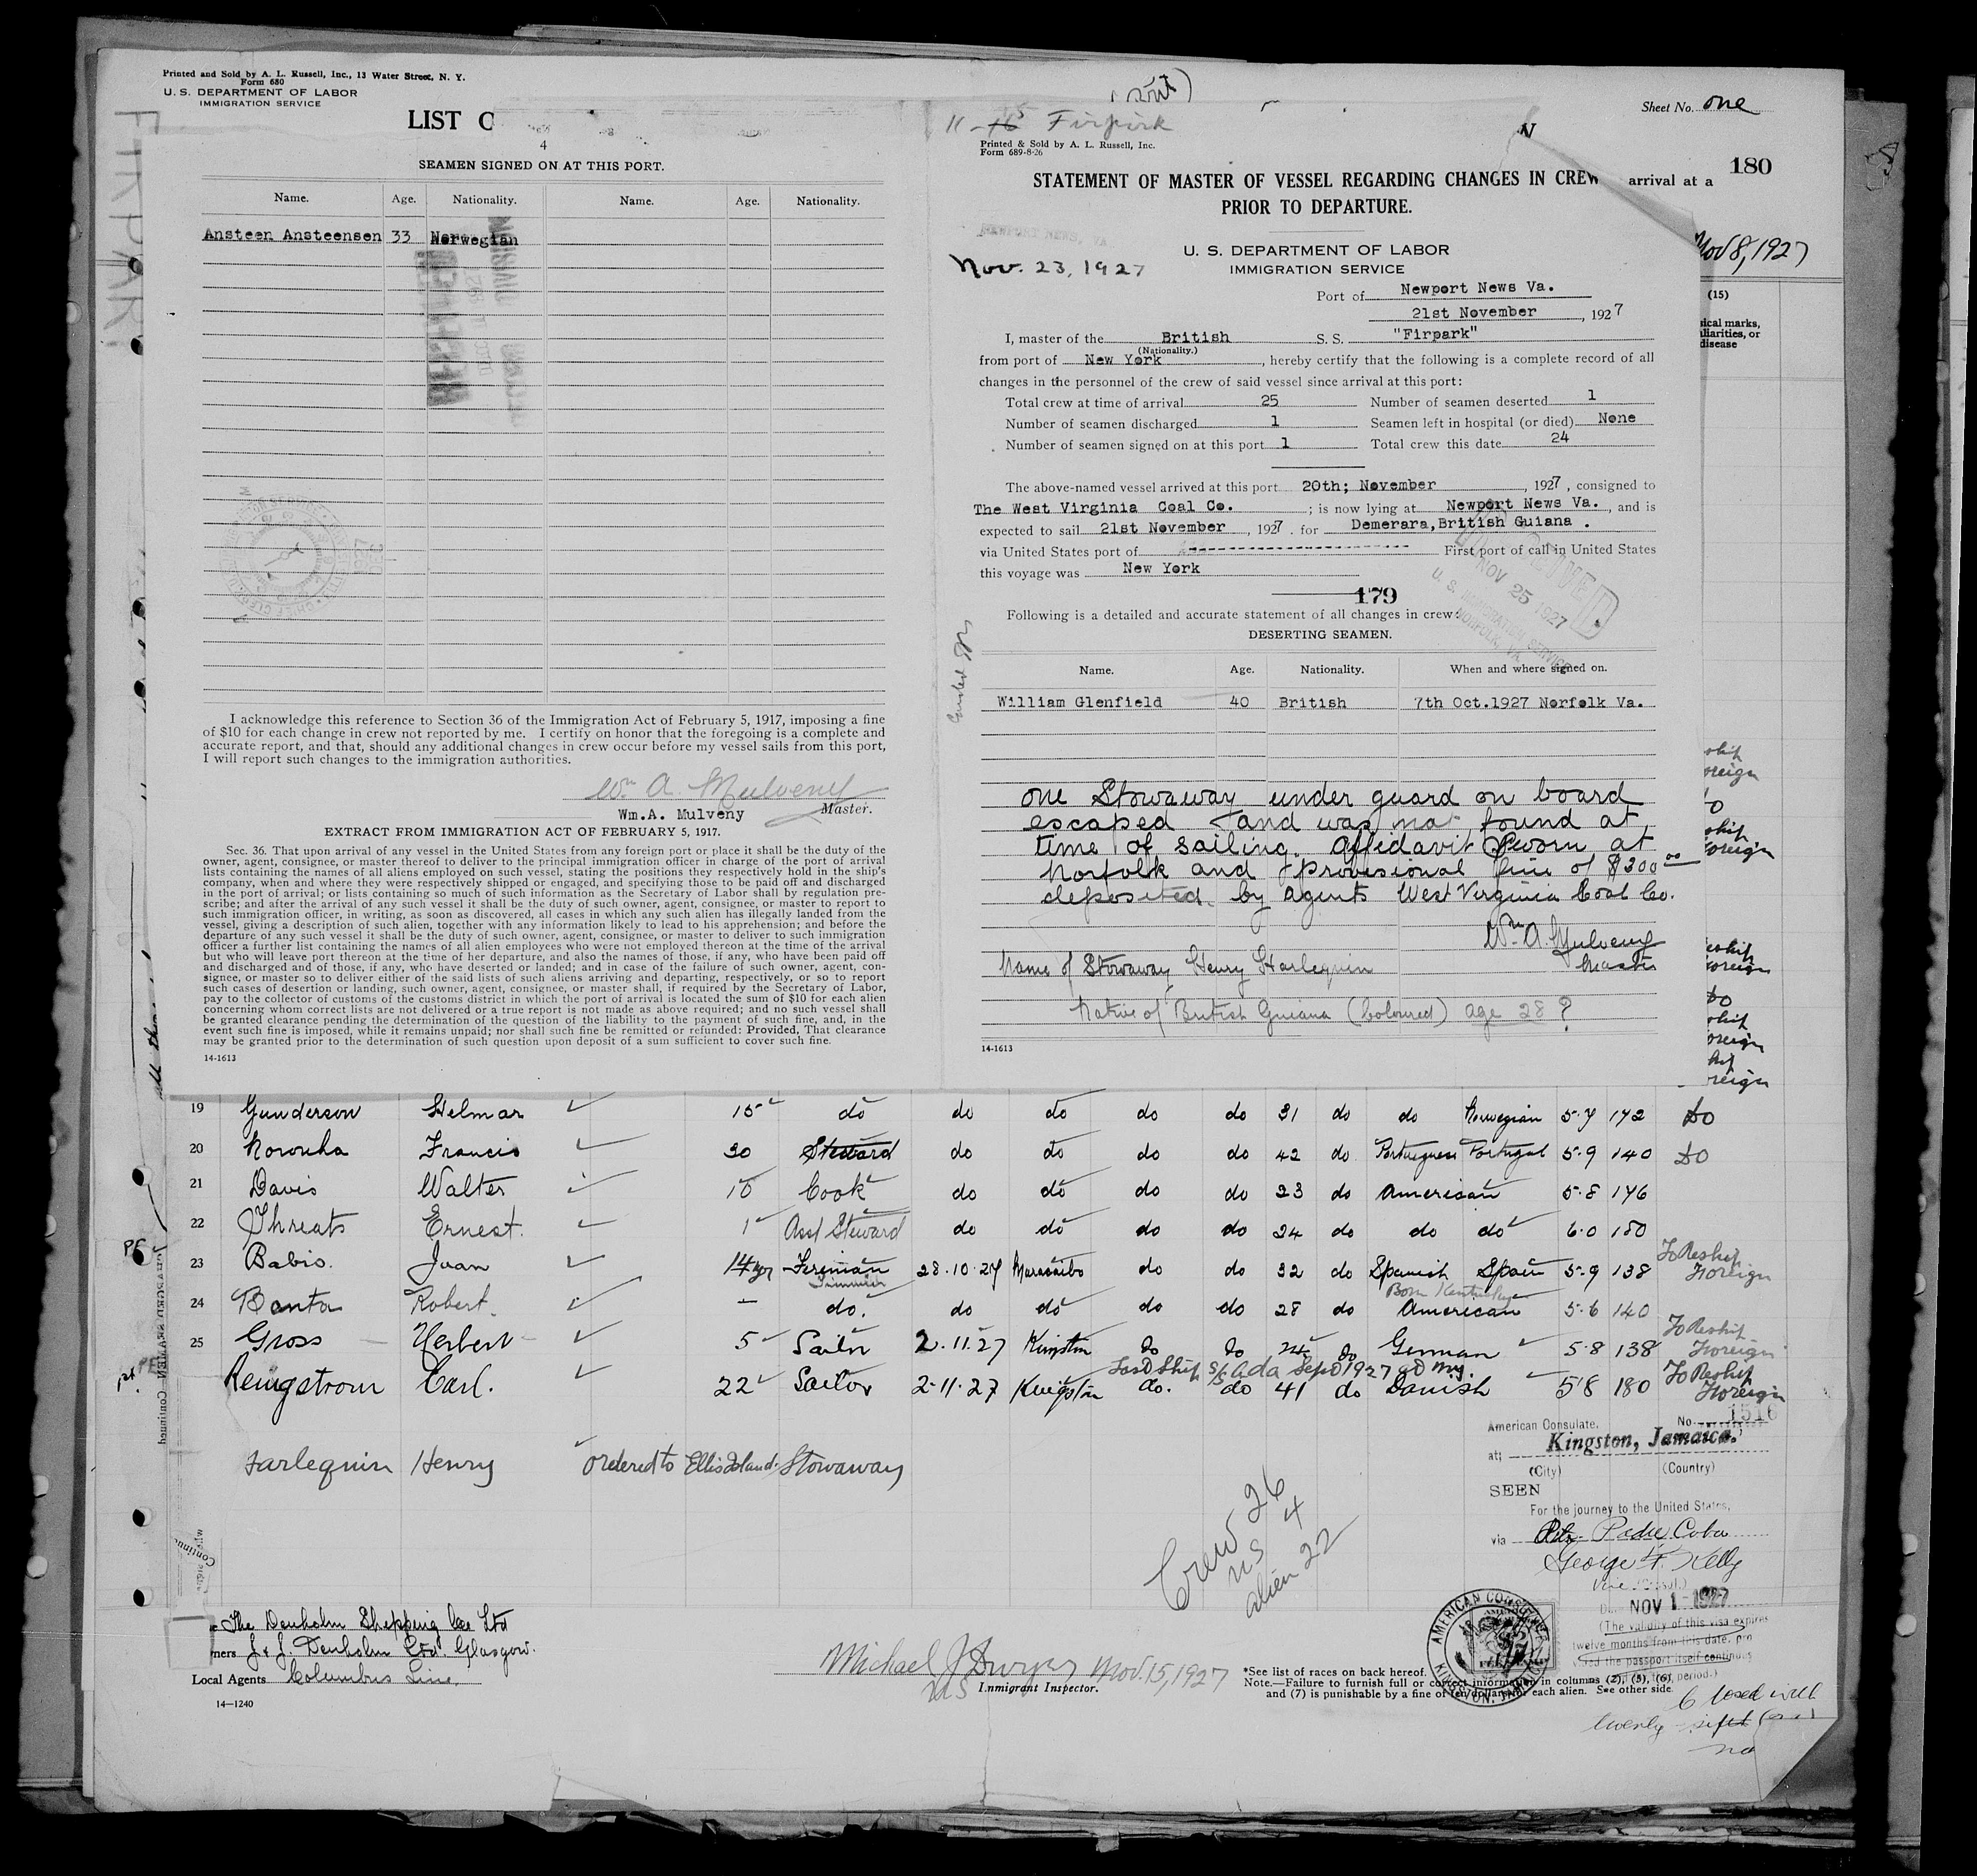 Printed and Sold by A. L. Russell, Inc., 13 Water Street, N. Y.
Form 680
U. S. DEPARTMENT OF LABOR
IMMIGRATION SERVICE
LIST
Sheet No. one
180
arrival at a
Nov 8, 1927
(15)
disease
FIRPARK
4
SEAMEN SIGNED ON AT THIS PORT.
Name. Age. Nationality. Name. Age. Nationality.
Ansteen Ansteensen 33 Norwegian
I acknowledge this reference to Section 36 of the Immigration Act of February 5, 1917, imposing a fine
of $10 for each change in crew not reported by me. I certify on honor that the foregoing is a complete and
accurate report, and that, should any additional changes in crew occur before my vessel sails from this port,
I will report such changes to the immigration authorities.
Wm A. Mulveny
Wm.A. Mulveny Master.
EXTRACT FROM IMMIGRATION ACT OF FEBRUARY 5, 1917.
Sec. 36. That upon arrival of any vessel in the United States from any foreign port or place it shall be the duty of the
owner, agent, consignee, or master thereof to deliver to the principal immigration officer in charge of the port of arrival
lists containing the names of all aliens employed on such vessel, stating the positions they respectively hold in the ship's
company, when and where they were respectively shipped or engaged, and specifying those to be paid off and discharged
in the port of arrival; or lists containing so much of such information as the Secretary of Labor shall by regulation pre-
scribe; and after the arrival of any such vessel it shall be the duty of such owner, agent, consignee, or master to report to
such immigration officer, in writing, as soon as discovered, all cases in which any such alien has illegally landed from the
vessel, giving a description of such alien, together with any information likely to lead to his apprehension; and before the
departure of any such vessel it shall be the duty of such owner, agent, consignee, or master to deliver to such immigration
officer a further list containing the names of all alien employees who were not employed thereon at the time of the arrival
but who will leave port thereon at the time of her departure, and also the names of those, if any, who have been paid off
and discharged and of those, if any, who have deserted or landed; and in case of the failure of such owner, agent, con-
signee, or master so to deliver either of the said lists of such aliens arriving and departing, respectively, or so to report
such cases of desertion or landing, such owner, agent, consignee, or master shall, if required by the Secretary of Labor,
pay to the collector of customs of the customs district in which the port of arrival is located the sum of $10 for each alien
concerning whom correct lists are not delivered or a true report is not made as above required; and no such vessel shall
be granted clearance pending the determination of the question of the liability to the payment of such fine, and, in the
event such fine is imposed, while it remains unpaid; nor shall such fine be remitted or refunded: Provided, That clearance
may be granted prior to the determination of such question upon deposit of a sum sufficient to cover such fine.
14-1613
Printed & Sold by A. L. Russell, Inc.
Form 689-8-26
STATEMENT OF MASTER OF VESSEL REGARDING CHANGES IN CREW
PRIOR TO DEPARTURE.
NEWPORT NEWS, VA
Nov. 23, 1927
U. S. DEPARTMENT OF LABOR
IMMIGRATION SERVICE
Port of Newport News Va.
21st November, 1927
I, master of the British S. S. "Firpark"
(Nationality.)
from port of New York, hereby certify that the following is a complete record of all
changes in the personnel of the crew of said vessel since arrival at this port:
Total crew at time of arrival 25 Number of seamen deserted 1
Number of seamen discharged 1 Seamen left in hospital (or died) None
Number of seamen signed on at this port 1 Total crew this date 24
The above-named vessel arrived at this port 20th; November, 1927, consigned to
The West Virginia Coal Co.; is now lying at Newport News Va., and is
expected to sail 21st November, 1927. for Demerara,British Guiana .
via United States port of ---------- First port of call in United States
this voyage was New York
179
NOV 25 1927
U. S. IMMIGRATION SERVICE
NORFOLK, VA
Following is a detailed and accurate statement of all changes in crew:
DESERTING SEAMEN.
Name. Age. Nationality. When and where signed on.
William Glenfield 40 British 7th Oct.1927 Norfolk Va.
one Stowaway under guard on board
escaped and was not found at
time of sailing. Affidavit Sworn at
Norfolk and provisional fine of $300 00
deposited by agents West Virginia Coal Co.
Wm A. Mulveny
Master
Name of Stowaway Henry Harlequin
Native of British Guiana (Coloured) age 28 ?
14-1613
19 Gunderson Helmar 15 do do do do do 31 do do Norwegian 5-7 172 Do
20 Noronha Francis 30 Steward do do do do 42 do Portuguese Portugal 5-9 140 Do
21 Davis Walter 10 Cook do do do do 23 do American 5-8 146
22 Threats Ernest. 1 Asst Steward do do do do 24 do do do 6-0 180
23 Babio. Juan 14 yr Fireman 28.10.27 Maracaibo do do 32 do Spanish Spain 5-9 138 To Reship Foreign
Born Kentucky
24 Banta Robert. – do. do do do do 28 do American 5-6 140
25 Gross Herbert 5 Sailor 2.11.27 Kingston do do 24 do German 5-8 138 To Reship Foreign
Last Ship S/S Ada Sept 1927 at NY.
Rengstrom Carl. 22 Sailor 2-11-27 Kingston do. do 41 do Danish 5'8 180 To Reship Foreign
Harlequin Henry ordered to Ellis Island. Stowaway
Crew 26
US 4
alien 22
American Consulate. No. 1516
at Kingston, Jamaica.
(City) (Country)
SEEN
For the journey to the United States,
via
George F. Kelly
Vice Consul
NOV 1 - 1927
(The validity of this visa expires
twelve months from this date, pro
ded the passport itself continues
period.)
AMERICAN CONSULATE
KINGSTON, JAMAICA
The Denholm Shipping Co Ltd
J. & J. Denholm Ltd. Glasgow.
Local Agents Columbus Line.
14—1240
Michael J Dwyer Nov. 15, 1927
Immigrant Inspector.
*See list of races on back hereof.
Note.—Failure to furnish full or correct information in columns (2), (5), (6),
and (7) is punishable by a fine of ten dollars for each alien. See other side.